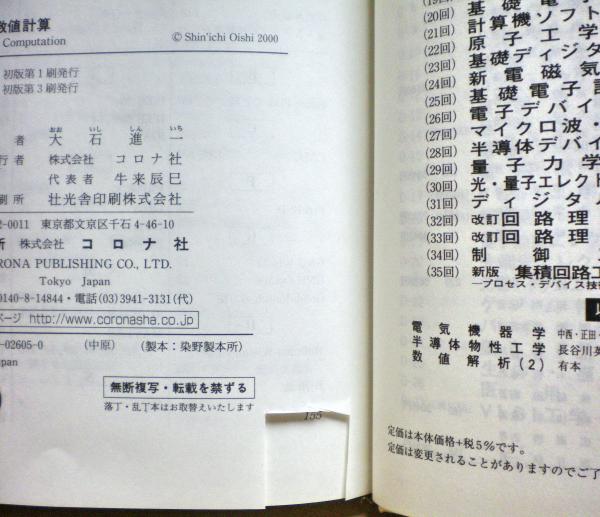 数値計算
Computation
© Shin'ichi Oishi 2000
初版第1刷発行
初版第3刷発行
おお いし しん いち
者 大石進一
行者 株式会社 コロナ社
代表者 牛来辰巳
刷所 壮光舎印刷株式会社
2-0011 東京都文京区千石4-46-10
所 株式会社 コロナ社
RONA PUBLISHING CO., LTD.
Tokyo Japan
0140-8-14844・電話(03)3941-3131(代)
ページ http://www.coronasha.co.jp
-02605-0 (中原) (製本:染野製本所)
apan
無断複写・転載を禁ずる
落丁・乱丁本はお取替えいたします
155
(19回) 基礎電子
(20回) 計算機ソフト
(21回) 原子工学
(22回) 基礎ディジタ
(23回) 新電磁気
(24回) 基礎電子計
(25回) 電子デバイ
(26回) マイクロ波・
(27回) 半導体デバイ
(28回) 量子力学
(29回) 光・量子エレクト
(30回) ディジタル
(31回)
(32回) 改訂 回路理
(33回) 改訂 回路理
(34回) 制御
(35回) 新版 集積回路工
―プロセス・デバイス技術
以
電気機器学 中西・正田・
半導体物性工学 長谷川英
数値解析(2) 有本
定価は本体価格+税5%です。
定価は変更されることがありますのでご了